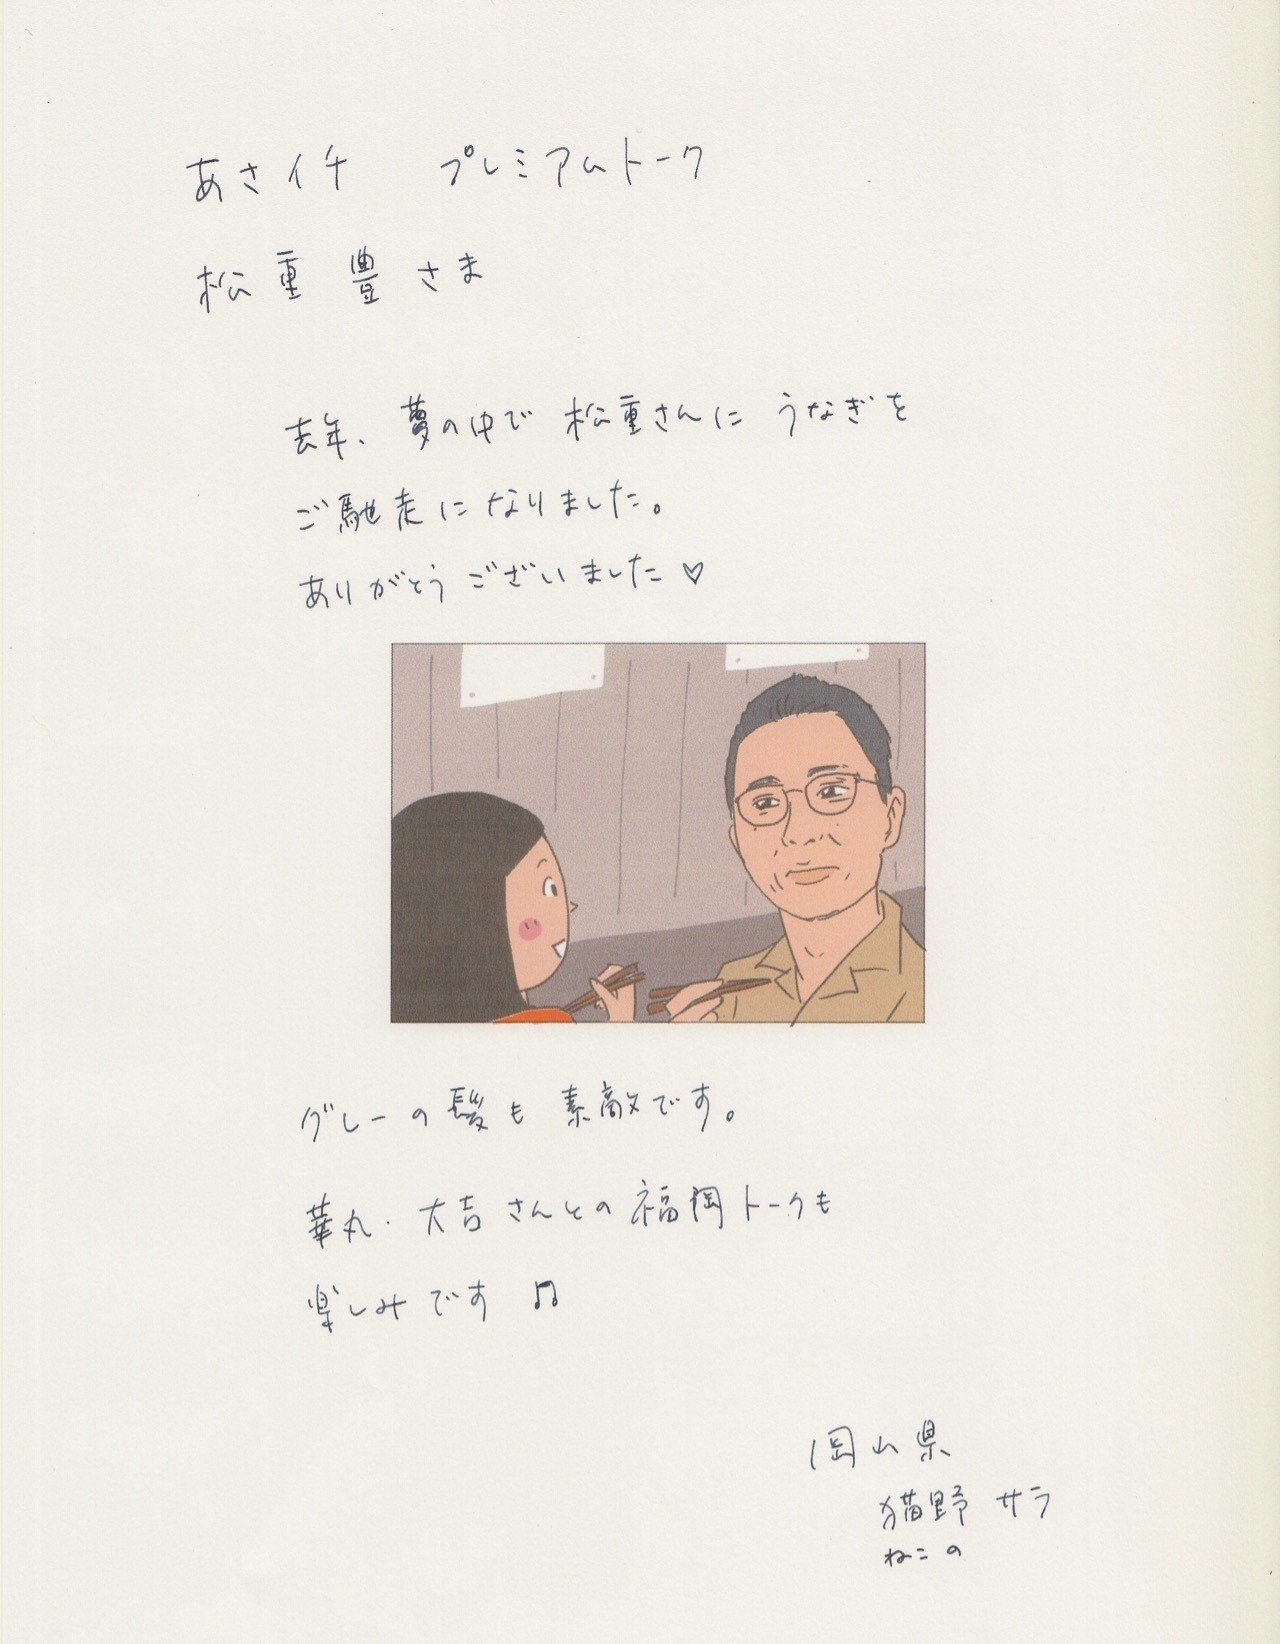 あさイチ　プレミアムトーク
松重 豊さま
去年、夢の中で 松重さんに うなぎを
ご馳走になりました。
ありがとう ございました♡
グレーの髪も 素敵です。
華丸・大吉さんとの福岡トークも
楽しみです ♫
岡山県
猫野 サラ
ねこの